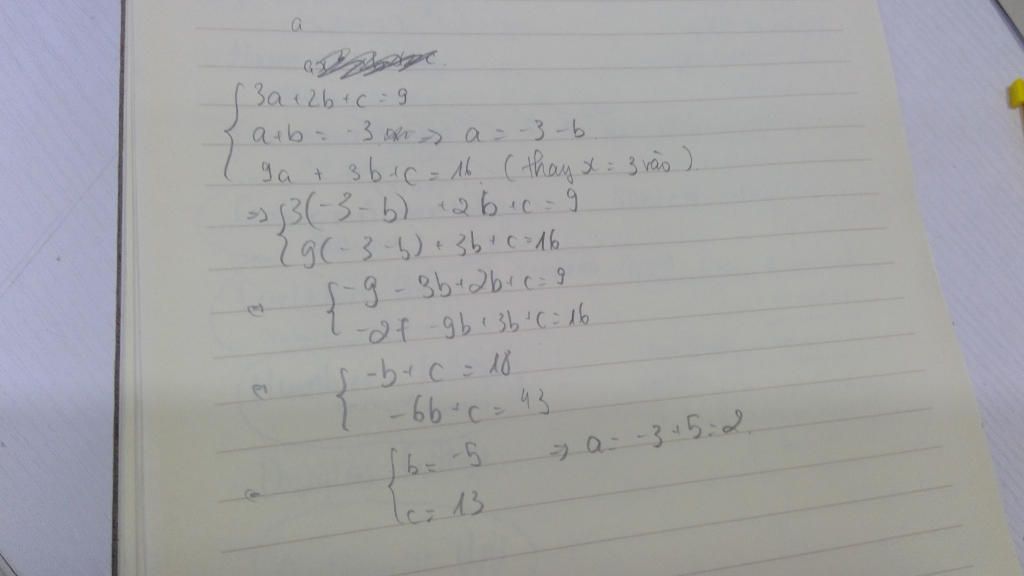 a
{ 3a + 2b + c = 9
a + b = -3 => a = -3 - b
9a + 3b + c = 16. (thay x = 3 vào)
=> { 3(-3 - b) + 2b + c = 9
9(-3 - b) + 3b + c = 16
<=> { -9 - 3b + 2b + c = 9
-27 - 9b + 3b + c = 16
<=> { -b + c = 18
-6b + c = 43
<=> { b = -5 => a = -3 + 5 = 2
c = 13